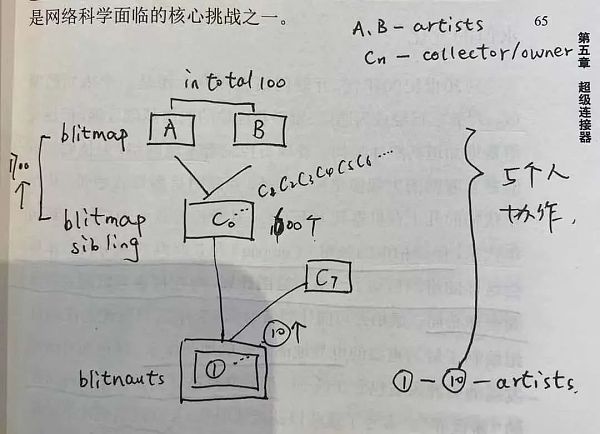 是网络科学面临的核心挑战之一。
65
第五章 超级连接器
A, B - artists
Cn - collector/owner
in total 100
blitmap A B
1700
C1 C2 C3 C4 C5 C6 ...
blitmap sibling
C0 ...
1600个
5个人
协作,
C7
⑩个
blitnauts
① ...
① - ⑩ - artists